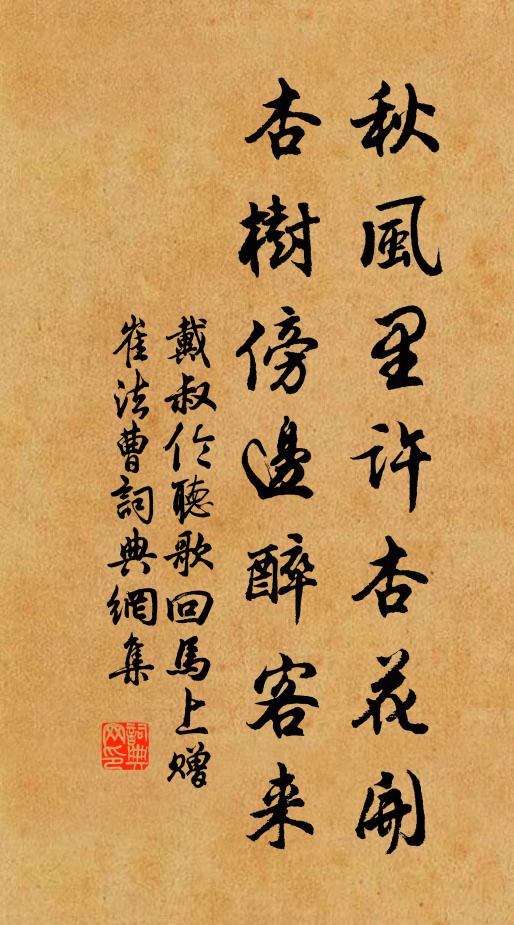 秋風里许杏花開
杏樹傍邊醉客来
戴叔伦聽歌回馬上赠
崔法曹詞典網集
詞典网印